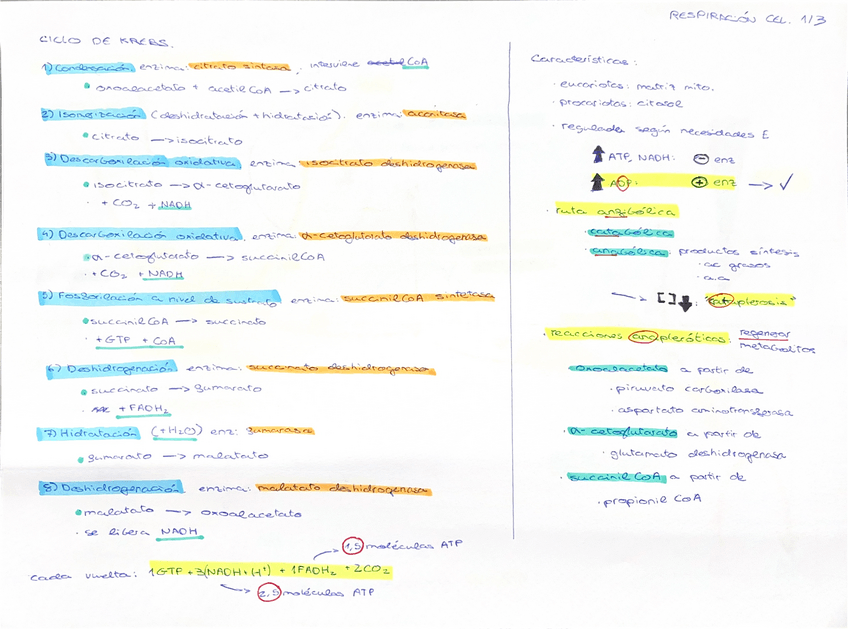 RESPIRACIÓN CEL. 1/3
CICLO DE KREBS.
1) Condensación enzima: citrato sintasa, interviene CoA
• oxoalacetato + acetil CoA → citrato
2) Isomerización (deshidratación + hidratación). enzima: aconitasa
• citrato → isocitrato
3) Descarboxilación oxidativa enzima: isocitrato deshidrogenasa
• isocitrato → α-cetoglutarato
· + CO₂ + NADH
4) Descarboxilación oxidativa, enzima: α-cetoglutarato deshidrogenasa
• α-cetoglutarato → succinil CoA
· + CO₂ + NADH
5) Fosforilación a nivel de sustrato enzima: succinil CoA sintetasa
• succinil CoA → succinato
· + GTP + CoA
6) Deshidrogenación enzima: succinato deshidrogenasa
• succinato → fumarato
· + FADH₂
7) Hidratación (+H₂O) enz: fumarasa
• fumarato → malatato
8) Deshidrogenación enzima: malatato deshidrogenasa
• malatato → oxoalacetato
· se libera NADH
1,5 moléculas ATP
cada vuelta: 1GTP + 3(NADH + H⁺) + 1FADH₂ + 2CO₂
2,5 moléculas ATP
Características:
· eucariotas: matriz mito.
· procariotas: citosol
· regulada según necesidades E
↑ ATP, NADH: ⊖ enz
↑ ADP: ⊕ enz → ✓
· ruta anfibólica
· catabólica
· anabólica: productos síntesis
· ac grasos
· a.a
→ [ ] ↓ : "cataplerosis"
· reacciones anapleróticas: regenerar
metabolitos
· Oxoalacetato a partir de
· piruvato carboxilasa
· aspartato aminotransferasa
· α-cetoglutarato a partir de
· glutamato deshidrogenasa
· succinil CoA a partir de
· propionil CoA